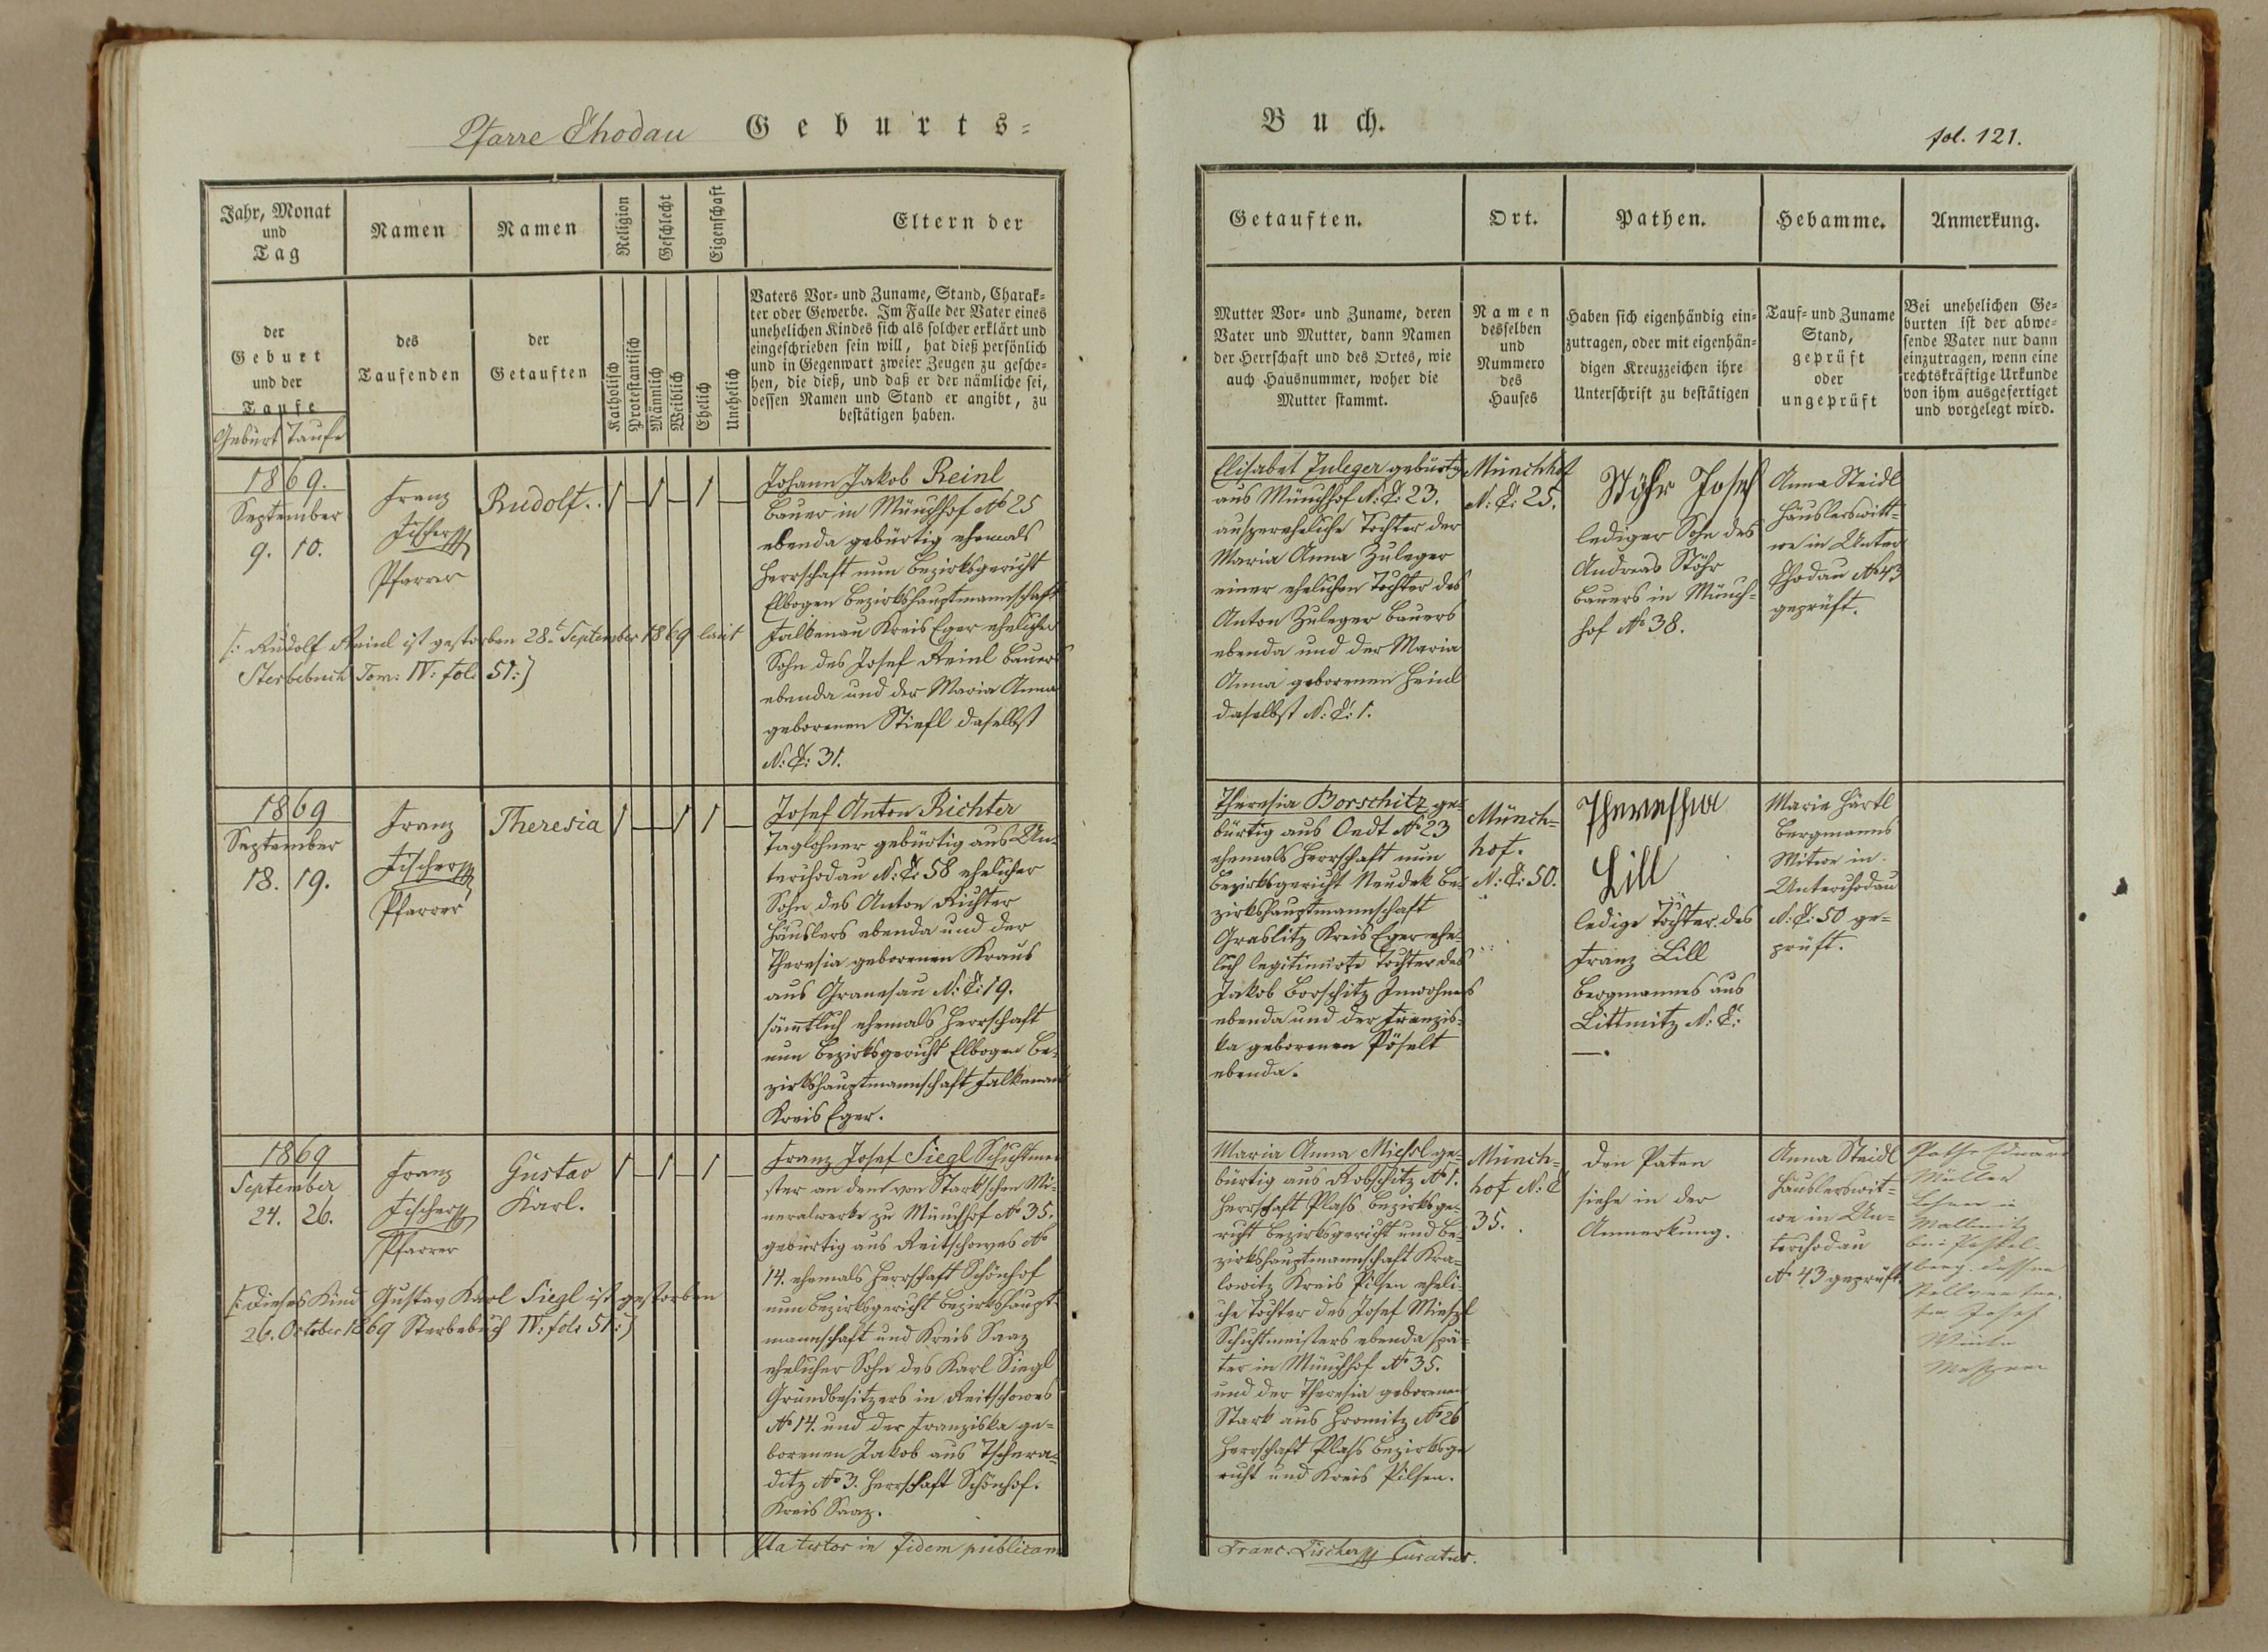 Pfarre Chodau Geburts-
Jahr, Monat
und
Tag
Namen
Namen
Religion
Geschlecht
Eigenschaft
Eltern der
der
Geburt
und der
Taufe
Geburt Taufe
des
Taufenden
der
Getauften
Katholisch
Protestantisch
Männlich
Weiblich
Ehelich
Unehelich
Vaters Vor- und Zuname, Stand, Charak-
ter oder Gewerbe. Im Falle der Vater eines
unehelichen Kindes sich als solcher erklärt und
eingeschrieben sein will, hat dieß persönlich
und in Gegenwart zweier Zeugen zu gesche-
hen, die dieß, und daß er der nämliche sei,
dessen Namen und Stand er angibt, zu
bestätigen haben.
1869.
September
9. 10.
Franz
Fischer
Pfarrer
Rudolf.
1 — 1 — 1 —
Johann Jakob Reinl
Bauer in Münchhof No 25
ebenda gebürtig ehemals
Herrschaft nun Bezirksgericht
Elbogen Bezirkshauptmannschaft
Falkenau Kreis Eger ehelicher
Sohn des Josef Reinl Bauers
ebenda und der Maria Anna
geborenen Stiefl daselbst
N: C: 31.
/: Rudolf Reinl ist gestorben 28. September 1869 laut
Sterbebuch Tom: IV: fol: 51:/
1869
September
18. 19.
Franz
Fischer
Pfarrer
Theresia
1 — 1 1 —
Josef Anton Richter
Taglohner gebürtig aus Un-
terchodau N: C: 58 ehelicher
Sohn des Anton Richter
Häuslers ebenda und der
Theresia geborenen Kraus
aus Granesau N: C: 19.
sämtlich ehemals Herrschaft
nun Bezirksgericht Elbogen Be-
zirkshauptmannschaft Falkenau
Kreis Eger.
1869
September
24. 26.
Franz
Fischer
Pfarrer
Gustav
Karl.
1 — 1 — 1 —
Franz Josef Siegl Schichtmei
ster an dem von Stark'schen Mi-
neralwerke zu Münchhof No 35.
gebürtig aus Reitschowes No
14. ehemals Herrschaft Schönhof
nun Bezirksgericht Bezirkshaupt-
mannschaft und Kreis Saaz
ehelicher Sohn des Karl Siegl
Grundbesitzers in Reitschowes
No 14. und der Franziska ge-
borenen Jakob aus Tschera-
ditz No 3. Herrschaft Schönhof.
Kreis Saaz.
/: Dieses Kind Gustav Karl Siegl ist gestorben
26. October 1869 Sterbebuch IV: fol: 51:/
Ita testor in fidem publicam
Buch.
fol. 121.
Getauften.
Ort.
Pathen.
Hebamme.
Anmerkung.
Mutter Vor- und Zuname, deren
Vater und Mutter, dann Namen
der Herrschaft und des Ortes, wie
auch Hausnummer, woher die
Mutter stammt.
Namen
desselben
und
Nummero
des
Hauses
Haben sich eigenhändig ein-
zutragen, oder mit eigenhän-
digen Kreuzzeichen ihre
Unterschrift zu bestätigen
Tauf- und Zuname
Stand,
geprüft
oder
ungeprüft
Bei unehelichen Ge-
burten ist der abwe-
sende Vater nur dann
einzutragen, wenn eine
rechtskräftige Urkunde
von ihm ausgefertiget
und vorgelegt wird.
Elisabet Zuleger gebürtig
aus Münchhof N: C: 23.
aussereheliche Tochter der
Maria Anna Zuleger
einer ehelichen Tochter des
Anton Zuleger Bauers
ebenda und der Maria
Anna geborenen Heinl
daselbst N: C: 1.
Münchhof
N: C: 25.
Stöhr Josef
lediger Sohn des
Andreas Stöhr
Bauers in Münch-
hof No 38.
Anna Steidl
Häuslerswitt-
we in Unter
Chodau No 43
geprüft.
Theresia Borschitz ge-
bürtig aus Oedt No 23
ehemals Herrschaft nun
Bezirksgericht Neudek Be-
zirkshauptmannschaft
Graslitz Kreis Eger ehe-
lich legitimirte Tochter des
Jakob Borschitz Inwohners
ebenda und der Franzis-
ka geborenen Pöselt
ebenda.
Münch-
hof.
N: C: 50.
Theressia
Lill
ledige Tochter des
Franz Lill
Bergmannes aus
Littmitz N: C:
—.
Marie Härtl
Bergmanns
Witwe in
Unterchodau
N: C: 50 ge-
prüft.
Maria Anna Miessl ge-
bürtig aus Robschitz No 1.
Herrschaft Plass Bezirksge-
richt Bezirksgericht und Be-
zirkshauptmannschaft Kra-
lowitz Kreis Pilsen eheli-
che Tochter des Josef Miessl
Schichtmeisters ebenda spä-
ter in Münchhof No 35.
und der Theresia geborenen
Stark aus Hromitz No 26
Herrschaft Plass Bezirksge
richt und Kreis Pilsen.
Münch-
hof N: C
35.
Den Paten
siehe in der
Anmerkung.
Anna Steidl
Häuslerswit-
we in Un-
terchodau
No 43 geprüft.
Pathe Eduard
Müller
in
Wallmitz
bei
dessen
Stellvertre-
ter Josef
Franc. Fischer Curatus.